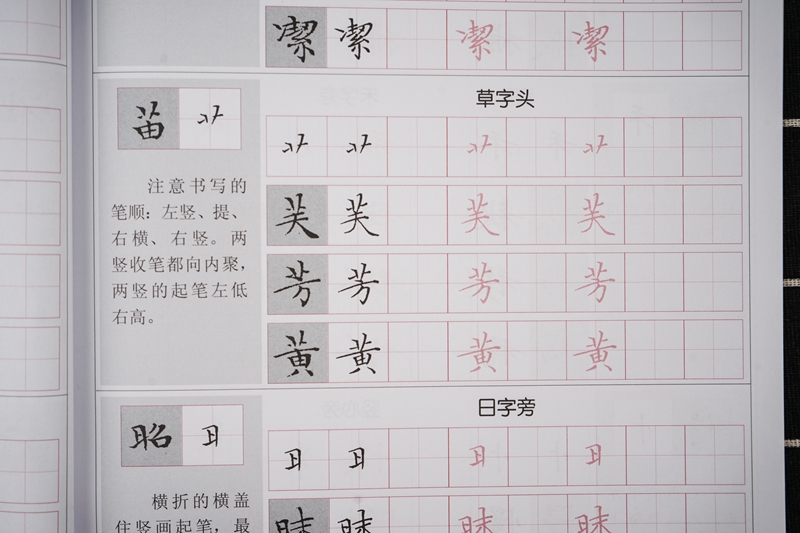 㓗 㓗 㓗 㓗
草字头
苗 艹
艹 艹 艹 艹
注意书写的
笔顺：左竖、提、
右横、右竖。两
竖收笔都向内聚，
两竖的起笔左低
右高。
芙 芙 芙 芙
芳 芳 芳 芳
黄 黄 黄 黄
日字旁
昭 日
日 日 日 日
横折的横盖
住竖画起笔，最
昧 昧 昧 昧